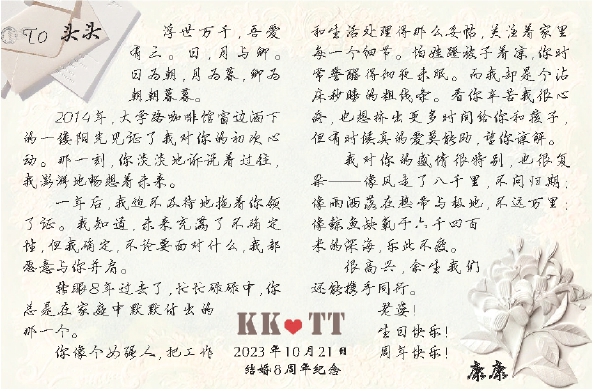 TO 头头
浮世万千，吾爱
有三。日，月与卿。
日为朝，月为暮，卿为
朝朝暮暮。
2014年，大学路咖啡馆窗边洒下
的一缕阳光见证了我对你的初次心
动。那一刻，你淡淡地诉说着过往，
我澎湃地畅想着未来。
一年后，我迫不及待地拖着你领
了证。我知道，未来充满了不确定
性，但我确定，不论要面对什么，我都
愿意与你并肩。
转眼8年过去了，忙忙碌碌中，你
总是在家庭中默默付出的
那一个。
你像个女强人，把工作
和生活处理得那么妥帖，关注着家里
每一个细节。怕娃踢被子着凉，你时
常警醒得彻夜未眠。而我却是个沾
床秒睡的粗线条。看你辛苦我很心
疼，也想挤出更多时间给你和孩子，
但有时候真的爱莫能助，望你谅解。
我对你的感情很特别，也很复
杂——像风走了八千里，不问归期；
像雨洒落在热带与极地，不远万里；
像鲸鱼缺氧于六千四百
米的深海，乐此不疲。
很高兴，余生我们
还能携手同行。
老婆！
生日快乐！
周年快乐！
康康
KK❤TT
2023年10月21日
结婚8周年纪念